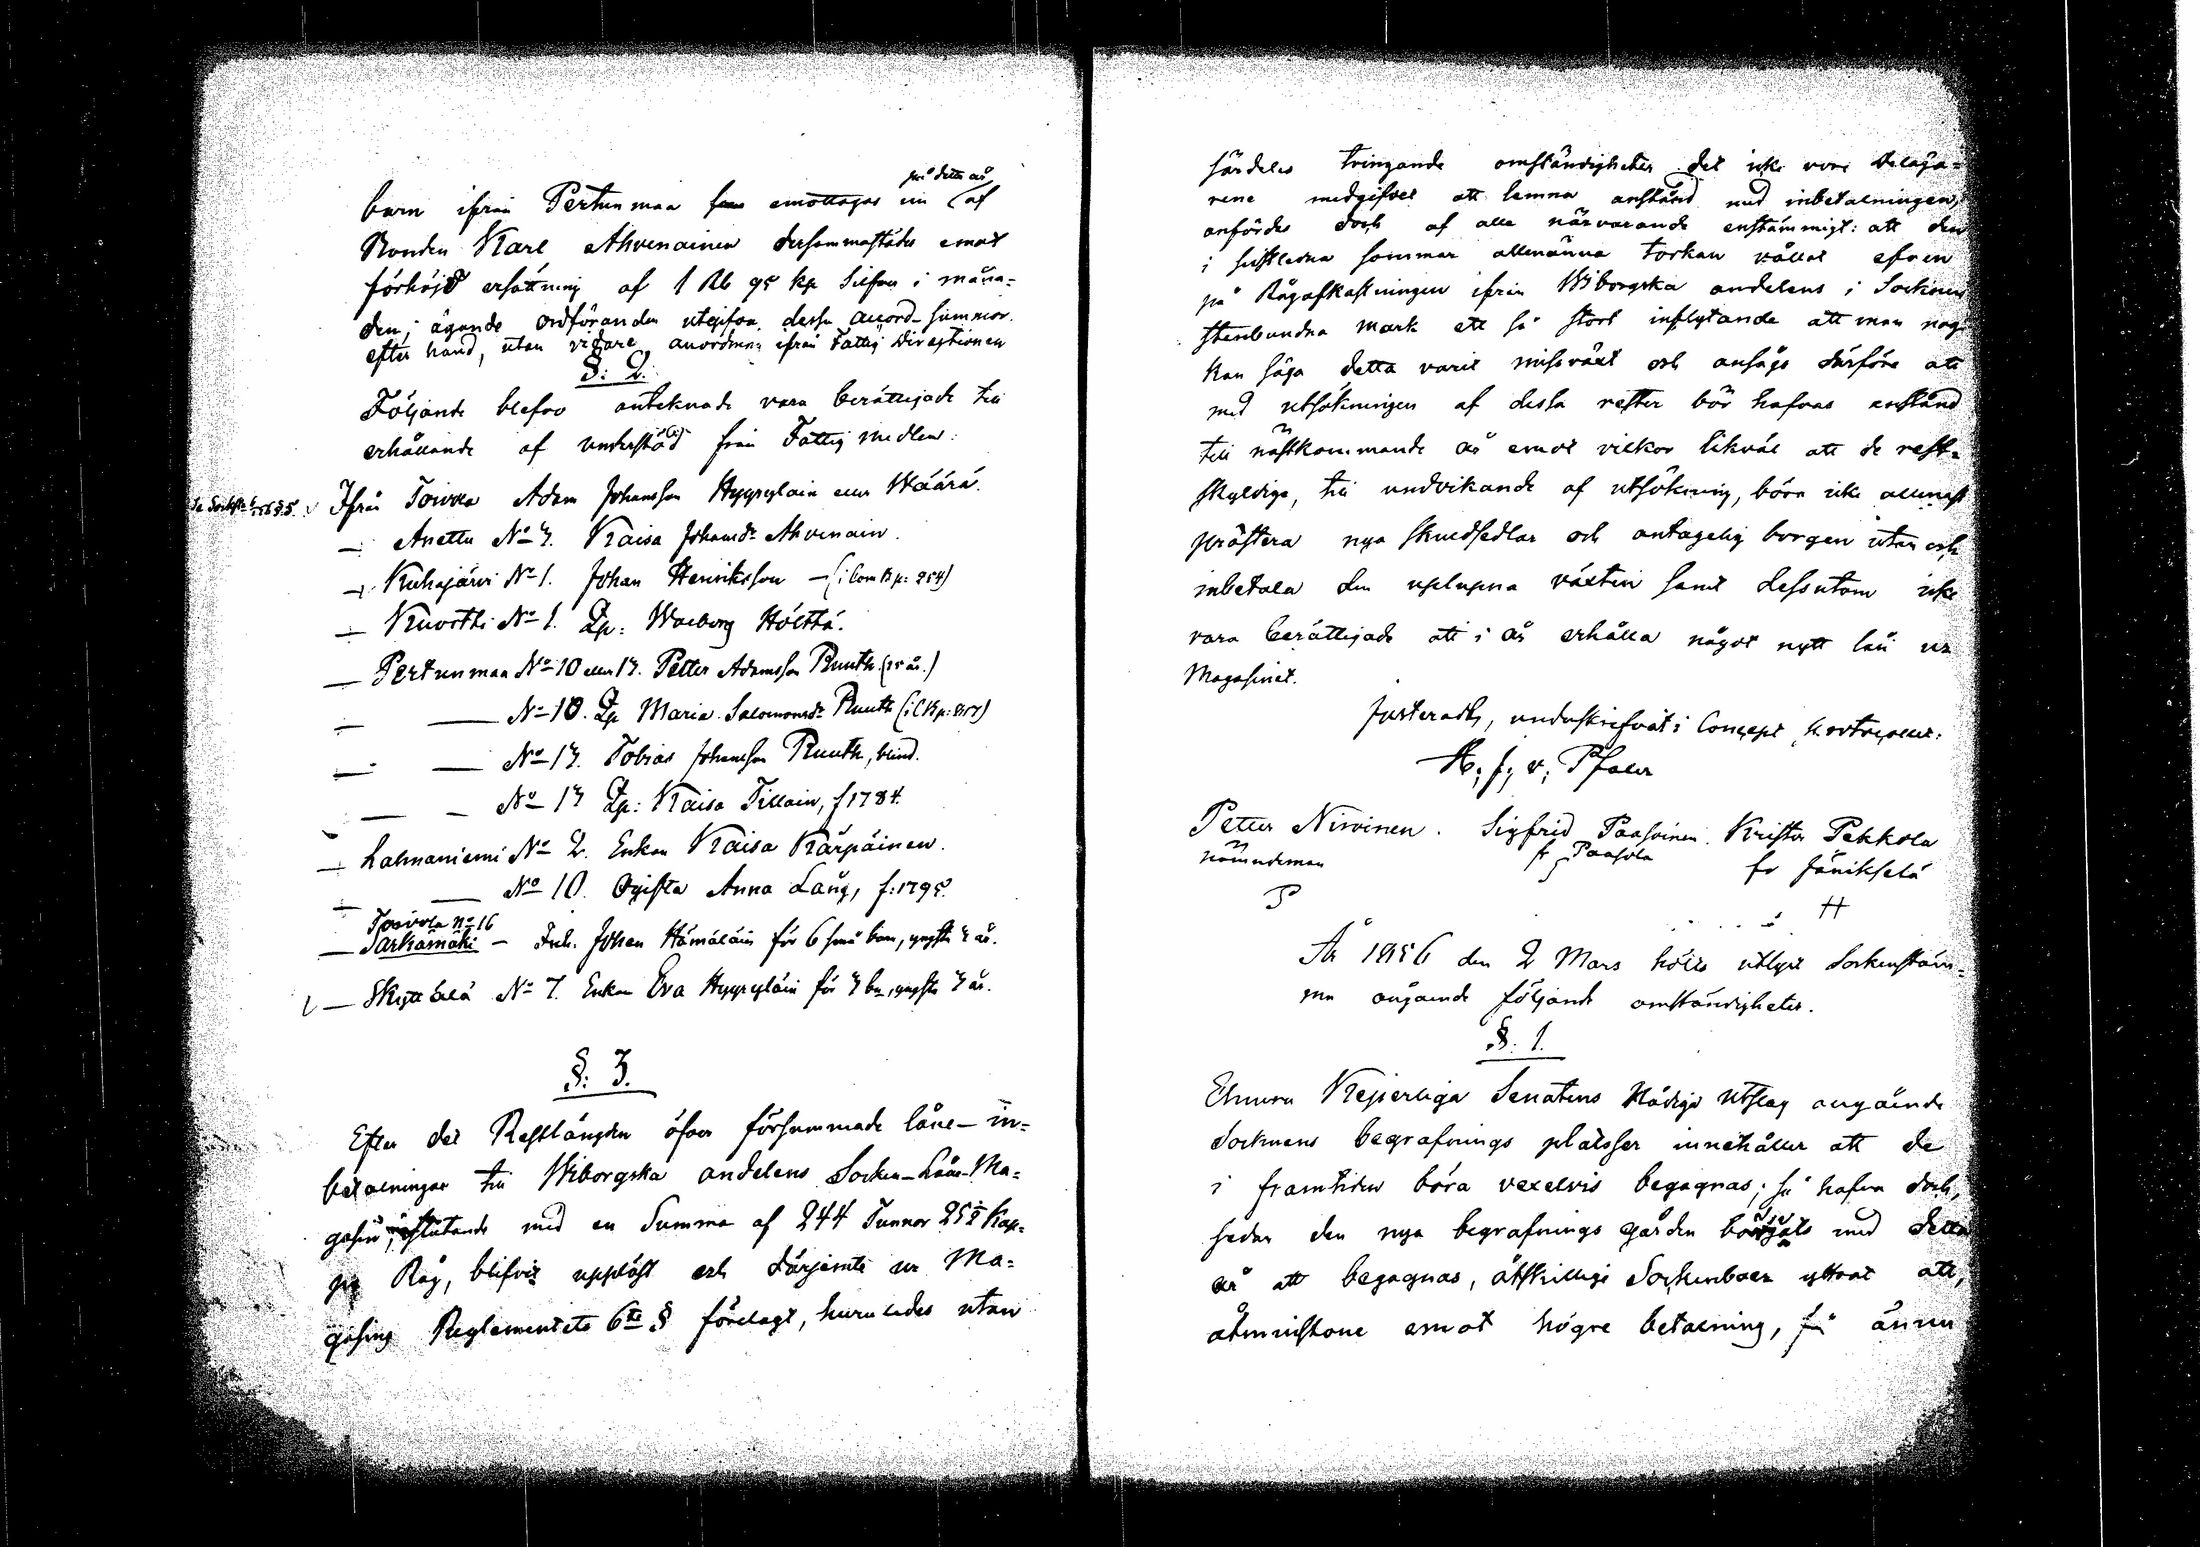 på detta år
barn ifrån Pertunmaa emottages nu af
Bonden Karl Ahvenainen dersammastädes emot
förhöjd ersättning af 1 Rb 95 kp Silfver i måna-
den, ägande ordföranden utgifva dessa accord-summor
efter hand, utan vidare anordning ifrån Fattig Directionen
§: 2.
Följande blefvo antecknade vara berättigade till
erhållande af understöd från Fattig medlen:
Ifrån Toivola Adam Johansson Hyyryläin eller Wäärä.
— Anettu No 7. Kaisa Johansdr Ahvenain.
— Kuhajärvi No 1. Johan Henriksson — (i Com B p: 254)
— Kuortti No 1. Ip: Walborg Hölttä.
— Pertunmaa No 10 eller 17. Petter Adamsson Ruuth. (25 år.)
— — No 10. Ip Maria Salomonsdr Ruuth (i C B p: 857)
— — No 17. Tobias Johansson Ruuth, blind.
— — No 17 Ip: Kaisa Tillain, f 1784.
— Lahnaniemi No 2. Enkan Kaisa Kärpäinen.
— — No 10. Ogifta Anna Lång, f: 1795.
Toivola No 16
— Sarkamäki — Inh. Johan Hämäläin för 6 små barn, yngsta år.
— Skyttelä No 7. Enkan Eva Hyyryläin för 7 bn, yngsta 7 år.
§: 3.
Efter det Restlängden öfver försummade låne-in-
betalningar till Wiborgska andelens Socken-Låne-Ma-
gasin, slutande med en Summa af 244 Tunnor 25½ Kap-
par Råg, blifvit uppläst och därjemte ur Ma-
gasins Reglementets 6te § förelagt, huruledes utan
särdeles tvingande omständigheter det icke vore Delega-
rene medgifvet att lemna anstånd med inbetalningen,
anfördes dock af alla närvarande enstämmigt: att den
i sistledna sommar allmänna torkan vållat äfven
på Rågafkastningen ifrån Wiborgska andelens i Socknen
stenbundna mark ett så stort inflytande att man nog
kan säga detta varit missväxt och ansågs därföre att
med utsökningen af dessa rester bör hafvas anstånd
till nästkommande år emot vilkor likväl att de rest-
skyldige, till undvikande af utsökning, böra icke allenast
prästera nya skuldsedlar och antagelig borgen utan och
inbetala den uplupna växten samt dessutom icke
vara berättigade att i år erhålla något nytt lån ur
Magasinet.
Justerades, underskrifvet i Concept,
H; f; v; Pfaler
Petter Nirvinen. Sigfrid Paasoinen. Krister Pekkola
nämndeman fr Paasola fr Jänikselä
År 1856 den 2 Mars hölls utlyst Sockenstäm-
ma angående följande omständigheter.
§: 1.
Ehuru Kejserliga Senatens Nådiga Utslag angående
Socknens begrafnings platsser innehåller att de
i framtiden böra vexelvis begagnas; så hafva dock,
sedan den nya begrafnings gården börjats med detta
år att begagnas, åtskillige Sockneboer yttrat att,
åtminstone emot högre betalning, få ännu